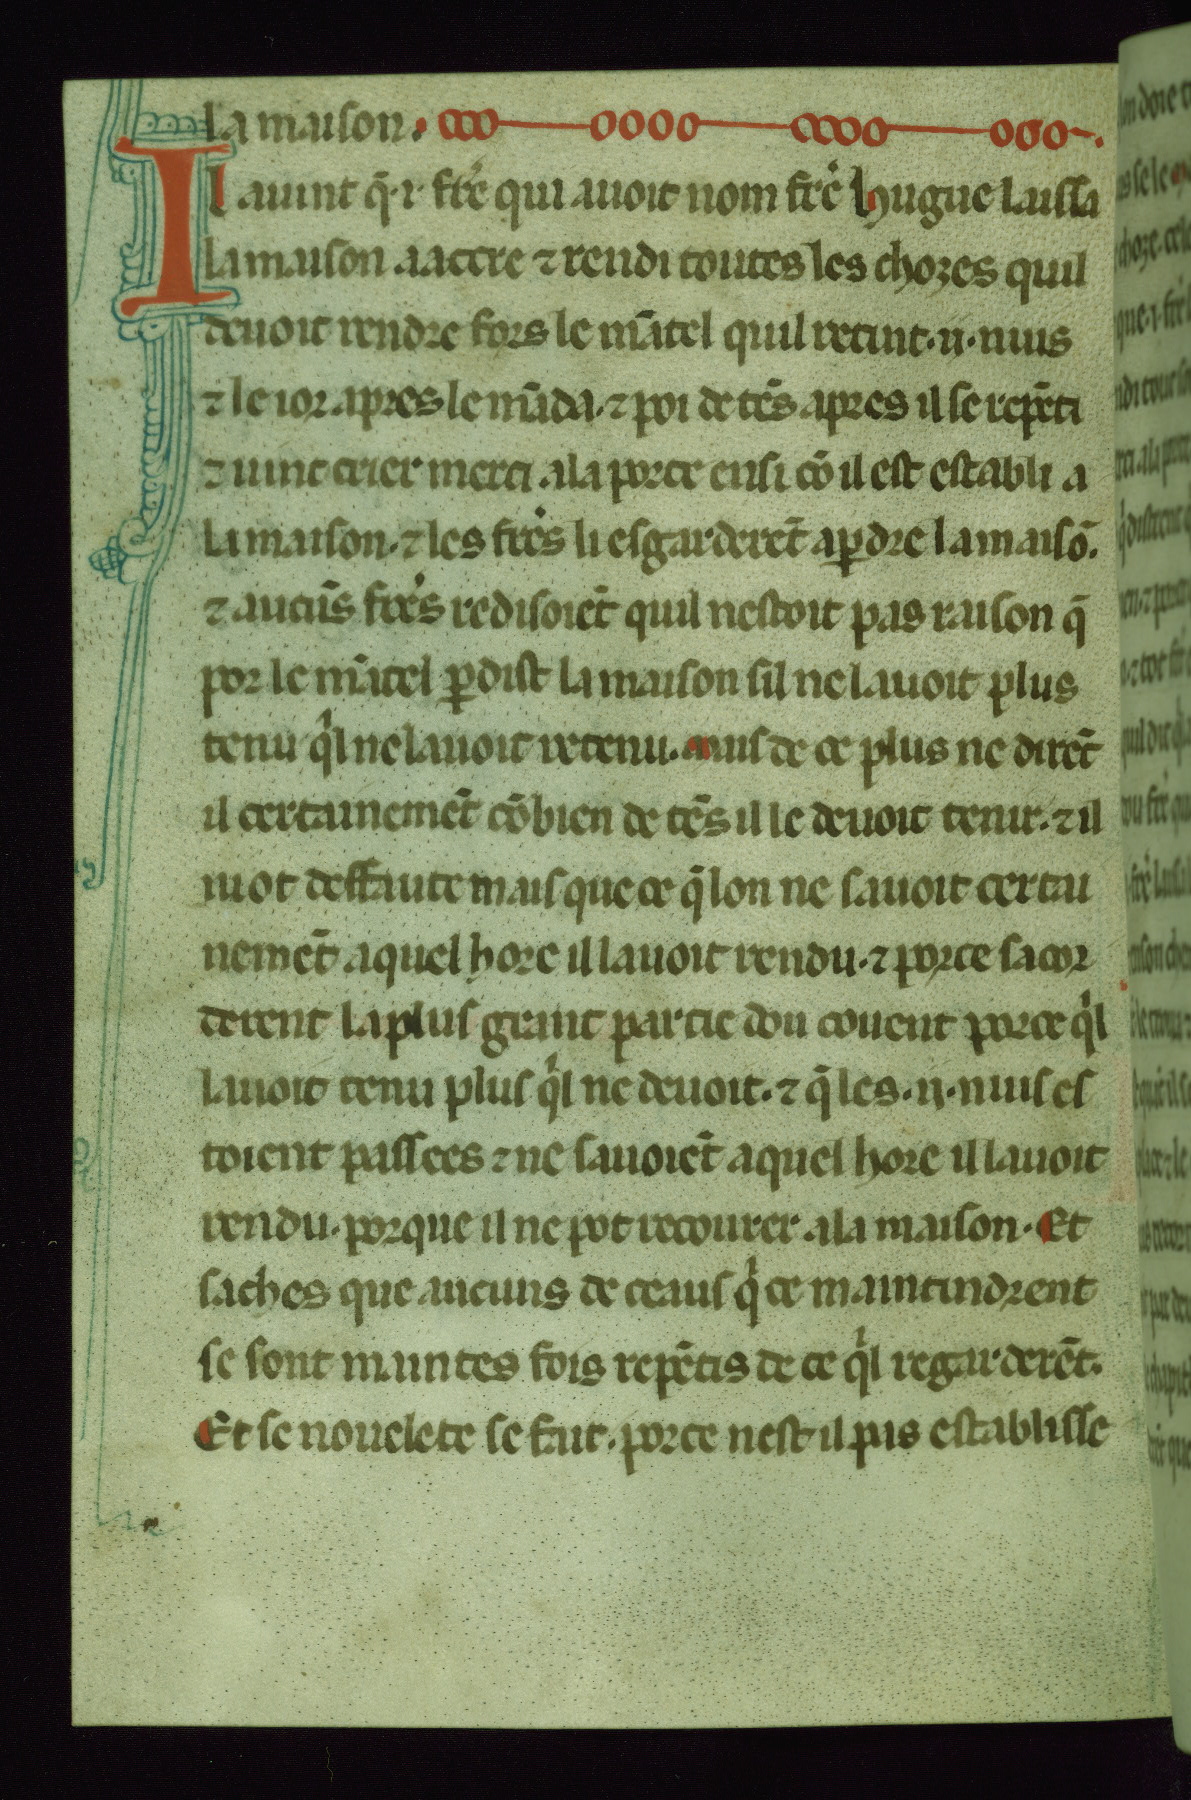 la maison.
Il avint q̄ .i. frē qui avoit nom frē hugue laissa
la maison a acre ⁊ rendi toutes les chozes quil
devoit rendre fors le mātel quil retint .ii. nuis
⁊ le ior apres le māda. ⁊ poi de tēs apres il se repēti
⁊ vint crier merci a la porte ensi cō il est establi a
la maison. ⁊ les frēs li esgarderēt a ꝑdre la maisō.
⁊ aucūs frēs redisoiēt quil nestoit pas raison q̄
por le mātel ꝑdist la maison sil ne lavoit plus
tenu qͥl ne lavoit retenu. mais de ce plus ne dirēt
il certainemēt cōbien de tēs il le devoit tenir. ⁊ il
ni ot deffaute mais que ce q̄ lon ne savoit certai
nemēt a quel hore il lavoit rendu. ⁊ por ce sacor
derent la plus grant partie dou covent por ce qͥl
lavoit tenu plus qͥl ne devoit. ⁊ q̄ les .ii. nuis es
toient passees ⁊ ne savoiēt a quel hore il lavoit
rendu. por que il ne pot recovrer a la maison. Et
saches que aucuns de ceaus qͥ ce maintindrent
se sont maintes fois repētis de ce qͥl regarderēt.
Et se novelete se fait. por ce nest il pas establisse